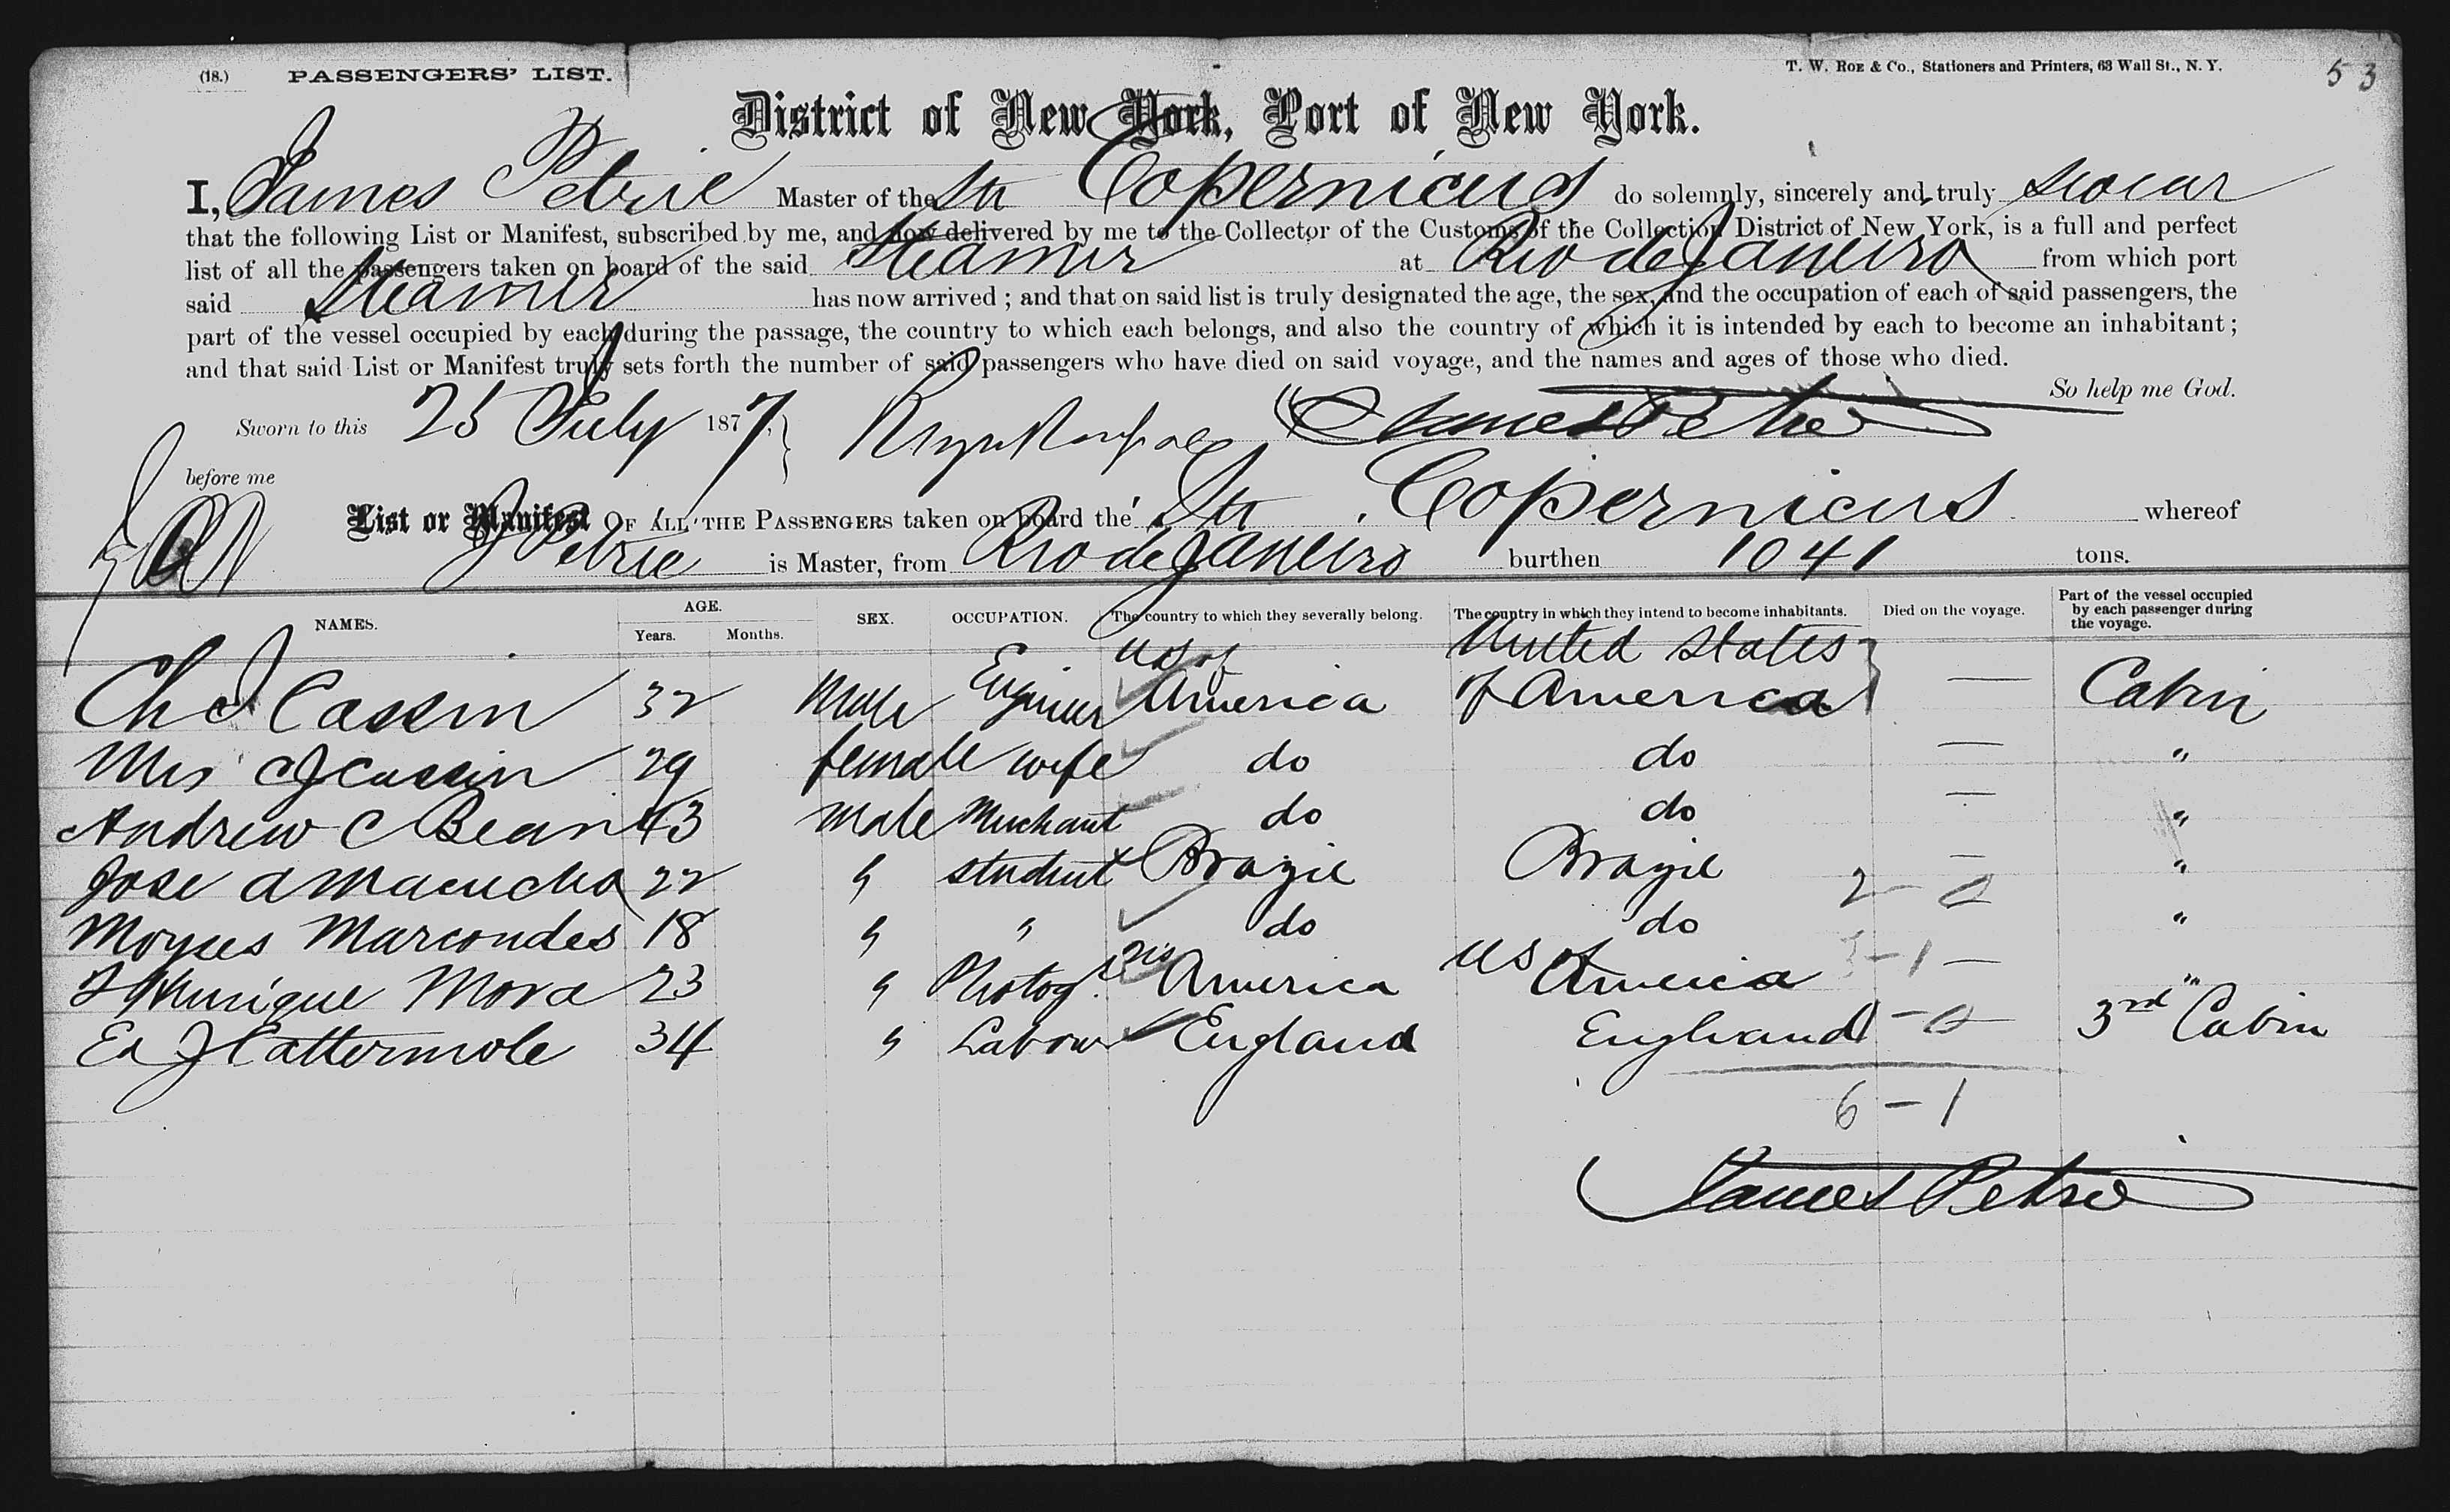 (18.) PASSENGERS' LIST.
T. W. ROE & Co., Stationers and Printers, 63 Wall St., N. Y.
53
District of New York, Port of New York.
I, James Petrie Master of the Str Copernicus do solemnly, sincerely and truly swear
that the following List or Manifest, subscribed by me, and now delivered by me to the Collector of the Customs of the Collection District of New York, is a full and perfect
list of all the passengers taken on board of the said Steamer at Rio de Janeiro from which port
said Steamer has now arrived ; and that on said list is truly designated the age, the sex, and the occupation of each of said passengers, the
part of the vessel occupied by each during the passage, the country to which each belongs, and also the country of which it is intended by each to become an inhabitant ;
and that said List or Manifest truly sets forth the number of said passengers who have died on said voyage, and the names and ages of those who died.
So help me God.
Sworn to this 25 July 1877, James Petrie
before me
List or Manifest OF ALL THE PASSENGERS taken on board the Str Copernicus whereof
J Petrie is Master, from Rio de Janeiro burthen 1041 tons.
NAMES. AGE. Years. Months. SEX. OCCUPATION. The country to which they severally belong. The country in which they intend to become inhabitants. Died on the voyage. Part of the vessel occupied by each passenger during the voyage.
Ch J Cassin 32 Male Engineer US of America United States of America — Cabin
Mrs C J Cassin 29 female wife do do — "
Andrew C Bean 43 Male Merchant do do — "
Jose a 22 " student Brazil Brazil — "
2 - 0
Moyses Marcondes 18 " " do do "
Mora 23 " Photog. America US of America — "
3 - 1
Ed J Cattermole 34 " Labour England England — 3rd Cabin
1 - 0
6 - 1
James Petrie